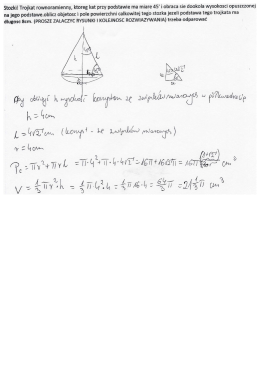 Stożki Trojkat rownoramienny, ktoreg kat przy podstawie ma miare 45° i obraca sie dookola wysokosci opuszczonej
na jego podstawe.oblicz objetosc i pole powierzchni calkowitej tego stozka jezeli podstawa tego trojkata ma
dlugosc 8cm. (PROSZE ZALACZYC RYSUNKI I KOLEJNOSC ROZWIAZYWANIA) trzeba odparować
h l
r
Aby obliczyć h wysokości korzystam ze związków miarowych w
h = 4cm
l = 4√2 cm (korzyst - ze związków miarowych)
r = 4cm
Pc = πr² + πrl = π·4² + π·4·4√2 = 16π + 16√2π = 16π(1+√2) cm³
V = 1/3 πr²·h = 1/3 π·4²·4 = 1/3 π·16·4 = 64/3 π = 21 1/3 π cm³